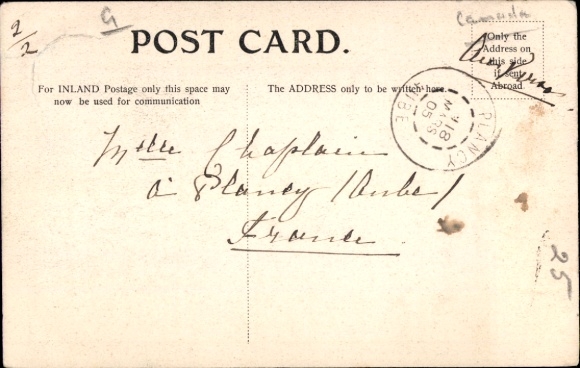 2/2
G
Canada
POST CARD.
Only the
Address on
this side
if sent
Abroad.
For INLAND Postage only this space may
now be used for communication
The ADDRESS only to be written here.
PLANCY
18
MARS
05
AUBE
Mlle Chaplain
à Plancy (Aube)
France
25